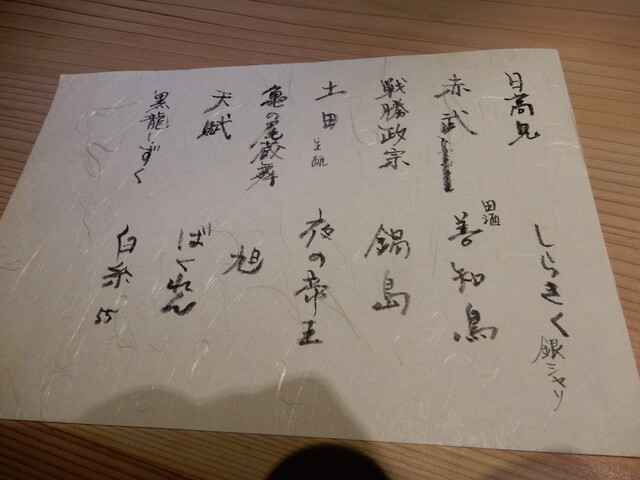 日高見
赤武
戦勝政宗
土田 生酛
亀の尾蔵舞
天賦
黒龍しずく
しらきく 銀シャリ
田酒 善知鳥
鍋島
夜の帝王
旭
ばくれん
白糸 55